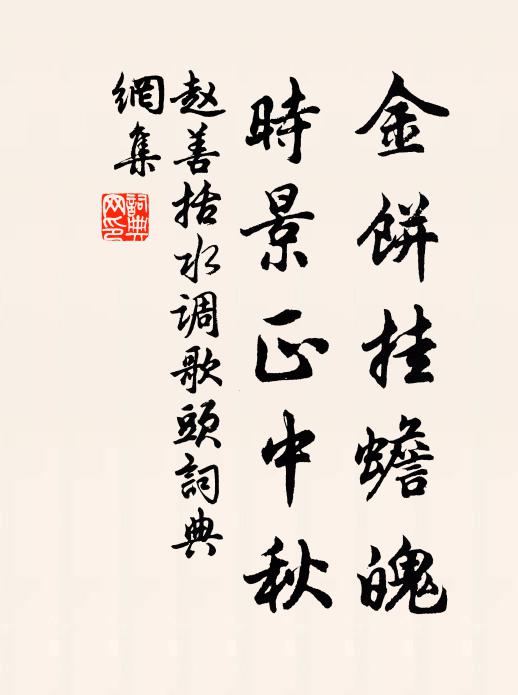 金餅挂蟾魄
時景正中秋
赵善括水调歌頭詞典
網集
詞典
网印